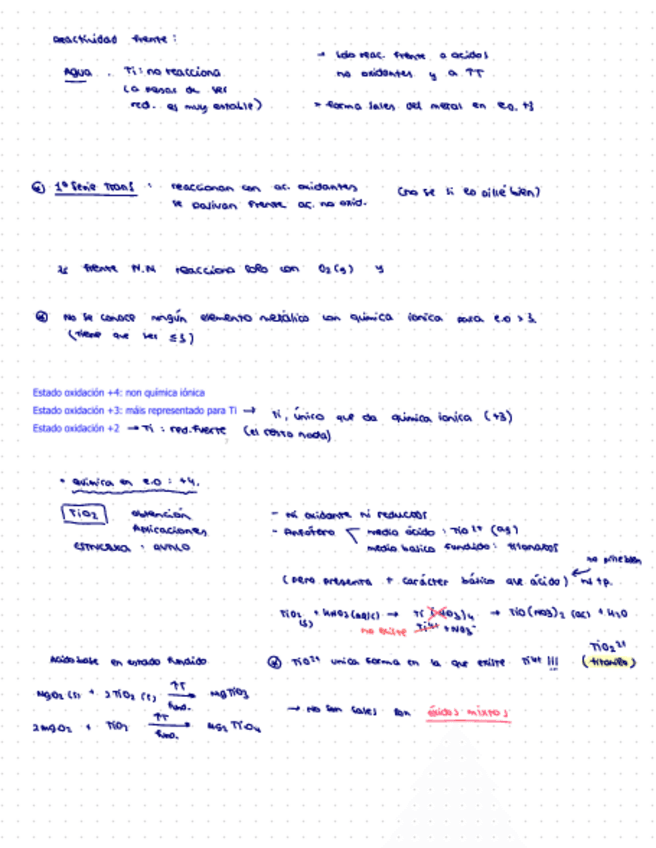 Reactividad frente:
Agua. Ti: no reacciona
(a pesar de ser
red. es muy estable)
→ solo reac. frente a acidos
no oxidantes y a ↑T
→ forma sales del metal en e.o. +3
1ª Serie Trans: reaccionan con ac. oxidantes (no se si lo pillé bien)
se pasivan frente ac. no oxid.
frente N.N reacciona solo con O2(g) y
No se conoce ningún elemento metálico con química ionica para e.o > 3.
(tiene que ser ≤3)
Estado oxidación +4: non química iónica
Estado oxidación +3: máis representado para Ti → Ti, único que da quimica ionica (+3)
Estado oxidación +2 → Ti: red. fuerte (el resto nada)
• quimica en e.o: +4.
TiO2 obtención
Aplicaciones
estructura: rutilo
- Ni oxidante ni reductor
- Anfótero medio ácido: TiO2+ (aq)
medio basico fundido: titanatos
no pille bien
(pero presenta + carácter básico que ácido) ni tp.
TiO2(s) + HNO3(aq/c) → Ti(NO3)4 → TiO(NO3)2 (ac) + H2O
no existe Ti4+ + NO3-
Acido base en estado fundido
TiO2+ unica forma en la que existe Ti4+ !!! (titanilo)
TiO2 2+
MgO2(s) + TiO2(s) ↑T fund. → MgTiO3
2MgO2 + TiO2 ↑T fund. → Mg2TiO4
→ No son sales son óxidos mixtos